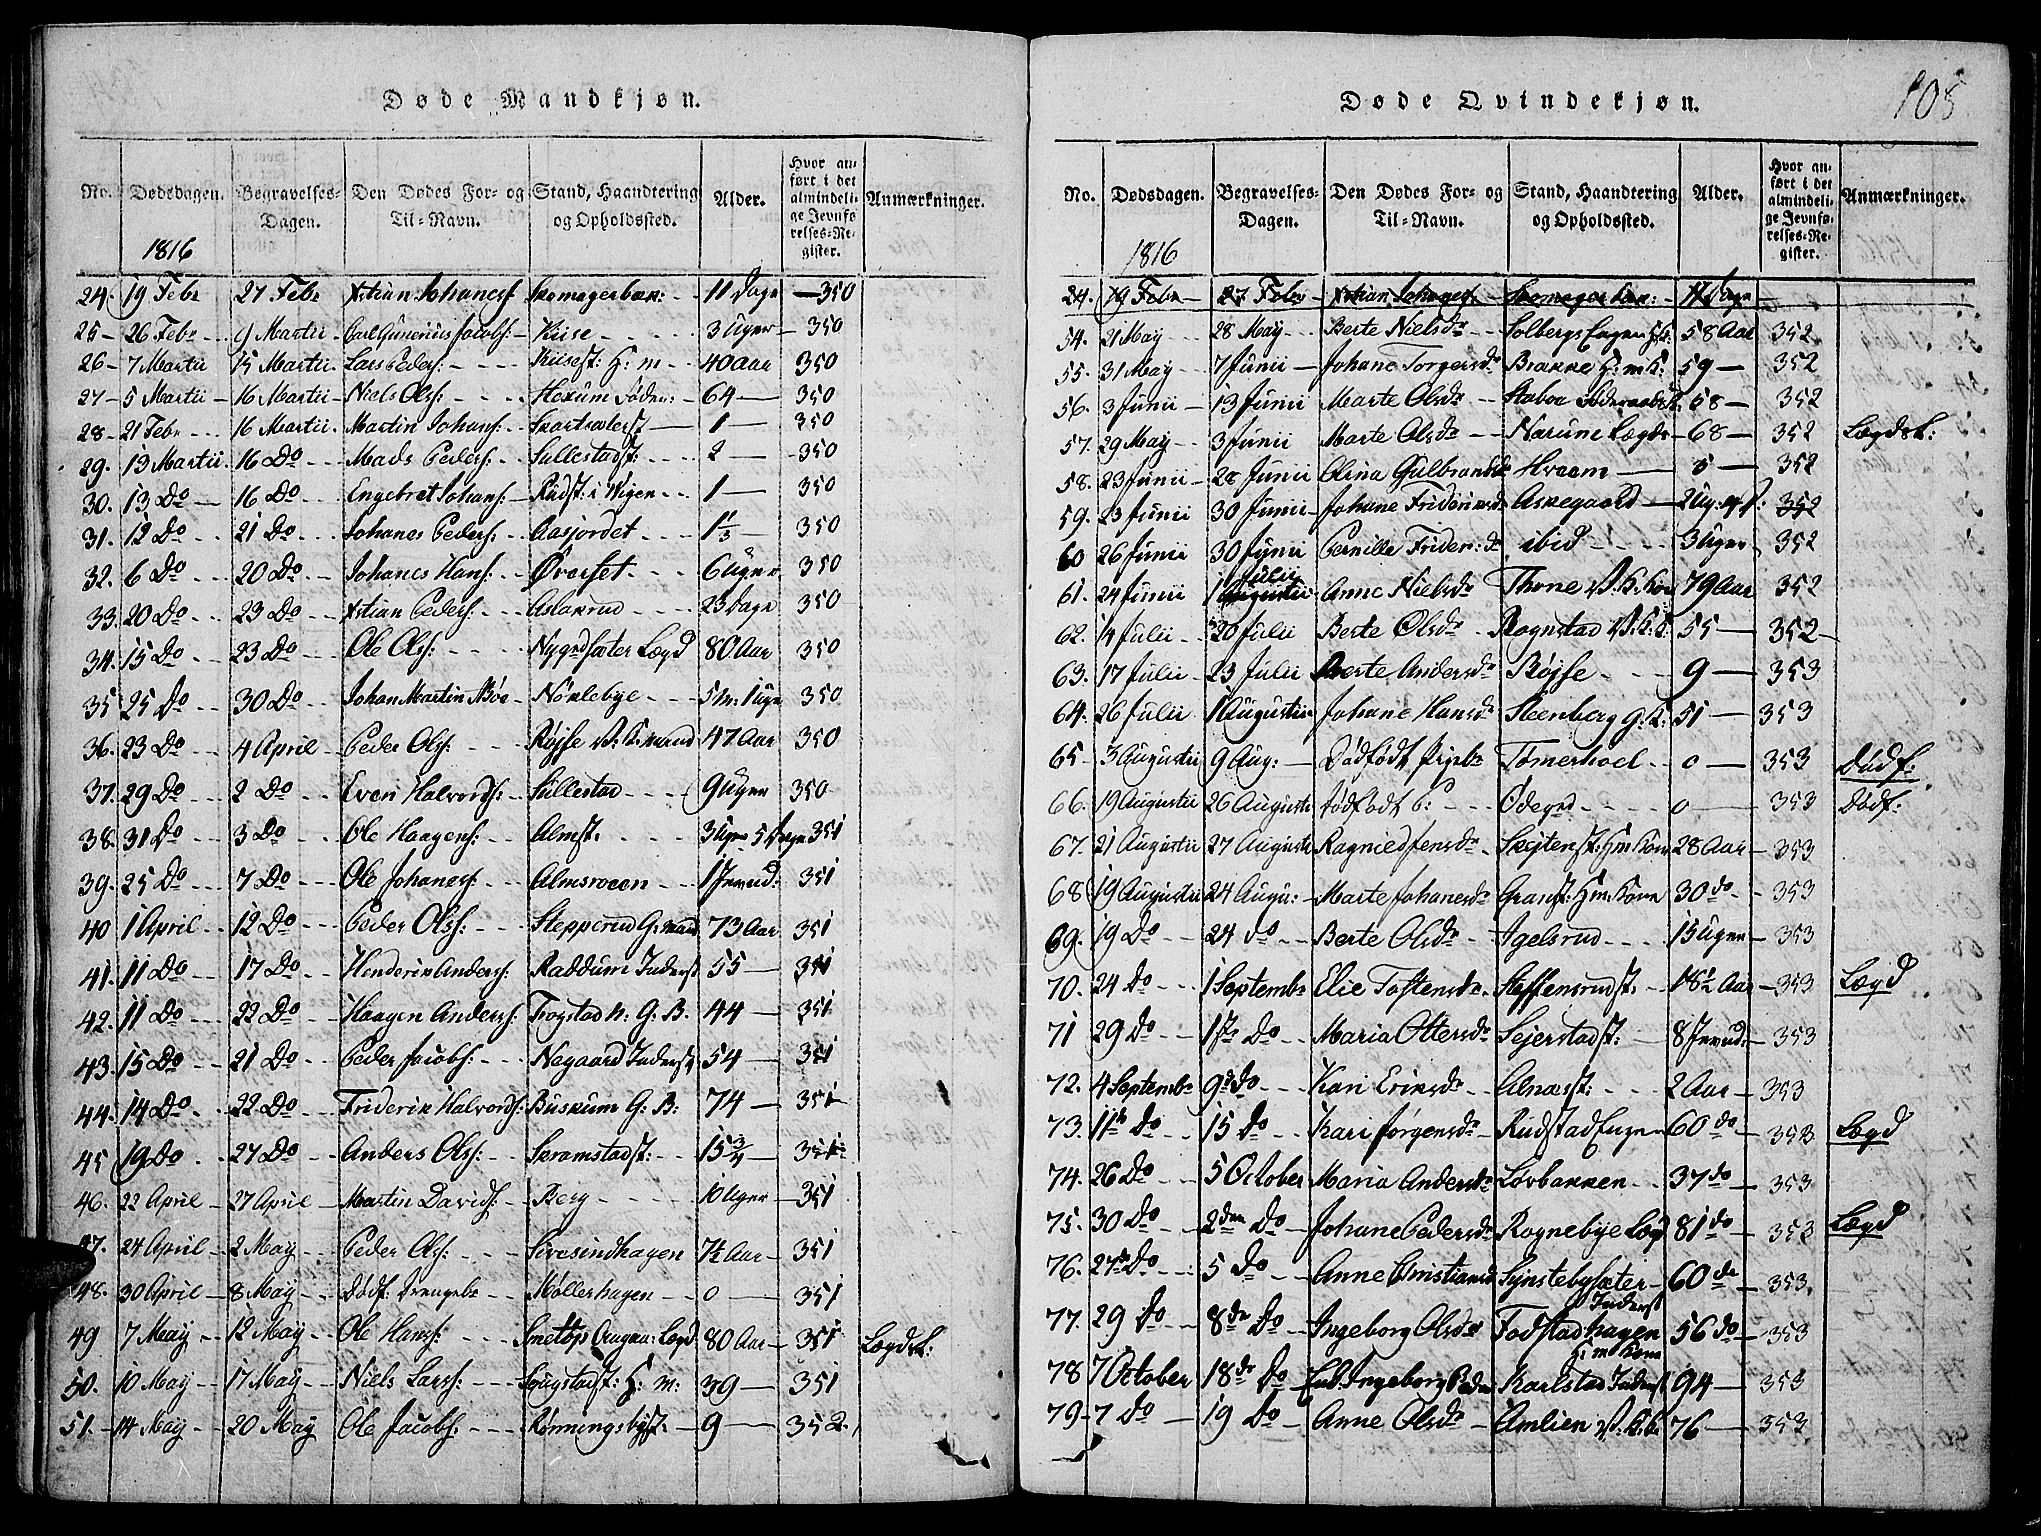 Døde Mandkjøn.
No. Dødsdagen. Begravelses-Dagen. Den Dødes For- og Til-Navn. Stand, Haandtering og Opholdssted. Alder. Hvor anført i det almindelige Jevnførelses-Register. Anmærkninger.
1816
24. 19 Febr 27 Febr Xstian Johaness: Skomagerbak: 11 Dage 350
25 26 Febr 9 Martii Carl Gunerius Jacobs: Kiise 3 Uger 350
26 7 Martii 15 Martii Lars Peders: Kiisest: H: m 40 Aar 350
27 5 Martii 16 Martii Niels Ols: Hoxum Søder: 64 350
28 21 Febr 16 Martii Martin Johans: 1 350
29. 13 Martii 16 Do Mads Peders: Sullestadst: 2 350
30. 13 Do 16 Do Engebret Johans: Rudst: i Wigen 1 350
31. 12 Do 21 Do Johanes Peders: Aasjordet 1 1/3 350
32. 6 Do 20 Do Johanes Hans: Øverset 6 Uger 350
33. 20 Do 23 Do Xstian Peders: Aslakrud 23 Dage 350
34. 15 Do 23 Do Ole Ols: Nygrdsæter Lægd 80 Aar 350
35 25 Do 30 Do Johan Martin Moe Noklebye 5 m: 1 Uge 350
36. 23 Do 4 April Peder Ols: Røjse 47 Aar 350
37. 29 Do 2 Do Even Halvords: Sullestad 9 Uger 350
38. 31 Do 3 Do Ole Haagens: Almst: 3 Uger 5 Dage 351
39. 25 Do 7 Do Ole Johanes: Almsroeen 351
40 1 April 12 Do Peder Ols: Stepperud G: mand 73 Aar 351
41. 11 Do 17 Do Henderik Anders: Raddum Inderst 55 351
42. 11 Do 22 Do Haagen Anders: Trogstad n: G. B. 44 351
43. 15 Do 21 Do Peder Jacobs: Negaard Inderst 54 351
44. 14 Do 22 Do Friderik Halvords: Buskum G: B: 74 351
45 19 Do 27 Do Anders Ols: Skramstadst: 15 3/4 351
46. 22 April 27 April Martin Davids: Berg 10 Uger 351
47. 24 April 2 May Peder Ols: Sivesindhagen 7½ Aar 351
48. 30 April 8 May Dødf: Drengeb: Møllerhagen 0 351
49 7 May 12 May Ole Hans: Lægd 80 Aar 351 Lægdsl:
50. 10 May 17 May Niels Lars: H: m: 39 351
51. 14 May 20 May Ole Jacobs: Rønningsbyst: 9 352
Døde Qvindekjøn.
105
No. Dødsdagen. Begravelses-Dagen. Den Dødes For- og Til-Navn. Stand, Haandtering og Opholdssted. Alder. Hvor anført i det almindelige Jevnførelses-Register. Anmærkninger.
1816
24. 19 Febr 27 Febr Xstian Johaness: Skomagerbak: 11 Dage
54. 21 May 28 May Berte Nielsdr Solbergs Eugen 58 Aar 352
55. 31 May 7 Junii Johane Torgersdr Brakke H: m K: 59 352
56. 3 Junii 13 Junii Marte Olsdr Staboe 58 352
57. 29 May 3 Junii Marte Olsdr Narune Lægds 68 352 Lægdsl:
58. 23 Junii 28 Junii Olina Gulbrandsdr Hvaam 5 352
59. 23 Junii 30 Junii Johane Fridriksdr Askegaard 2 Ug: 352
60 26 Junii 30 Junii Pernille Frider: dr ibid 3 Uger 352
61. 24 Junii 1 Julii Anne Nielsdr Thorne 79 Aar 352
62. 14 Julii 20 Julii Berte Olsdr Rognstad 55 352
63. 17 Julii 23 Julii Berte Andersdr Røjse 9 353
64. 26 Julii 1 Augustii Johane Hansdr Steenberg G: K: 51 353
65 3 Augustii 9 Aug: Dødfødt Pigeb: Tømerhoel 0 353 Dødf:
66. 19 Augustii 26 Augusti Dødfødt P: Ødegrd 0 353 Dødf:
67. 21 Augustii 27 Augusti Ragnied Jensdr Skjtenst: Hm Kone 28 Aar 353
68 19 Augustii 24 Augu: Marte Johanesdr Granst: Hm: Kone 30 do 353
69. 19 Do 24 do Berte Olsdr Igelsrud 15 Uger 353
70. 24 Do 1 Septembr Elie Tostensdr Steffensrudst: 18½ Aar 353 Lægd
71 29 Do 1ste Do Maria Ottersdr Sejerstadst: 353
72. 4 Septembr 9de do Kari Eriksdr Alnæsst: 2 Aar 353
73. 11te Do 15 Do Kari Jørgensdr Rudstad Eugen 60 do 353 Lægd
74. 26 Do 5 October Maria Andersdr Løvbakken 37 do 353
75. 30 Do 2den Do Johane Pedersdr Rognebye Læg 81 do 353 Lægd
76. 27de Do 5 Do Anne Christiansd Synstebysæter 60 do 353
77. 29 Do 8de Do Ingeborg Olsdr Fodstad hagen Inderst 56 do 353
78 7 October 18de Do Enk: Ingeborg Pedr Karlstad Inderst H: m Kone 94 353
79 7 Do 19 Do Anne Olsdr Amlien 76 353